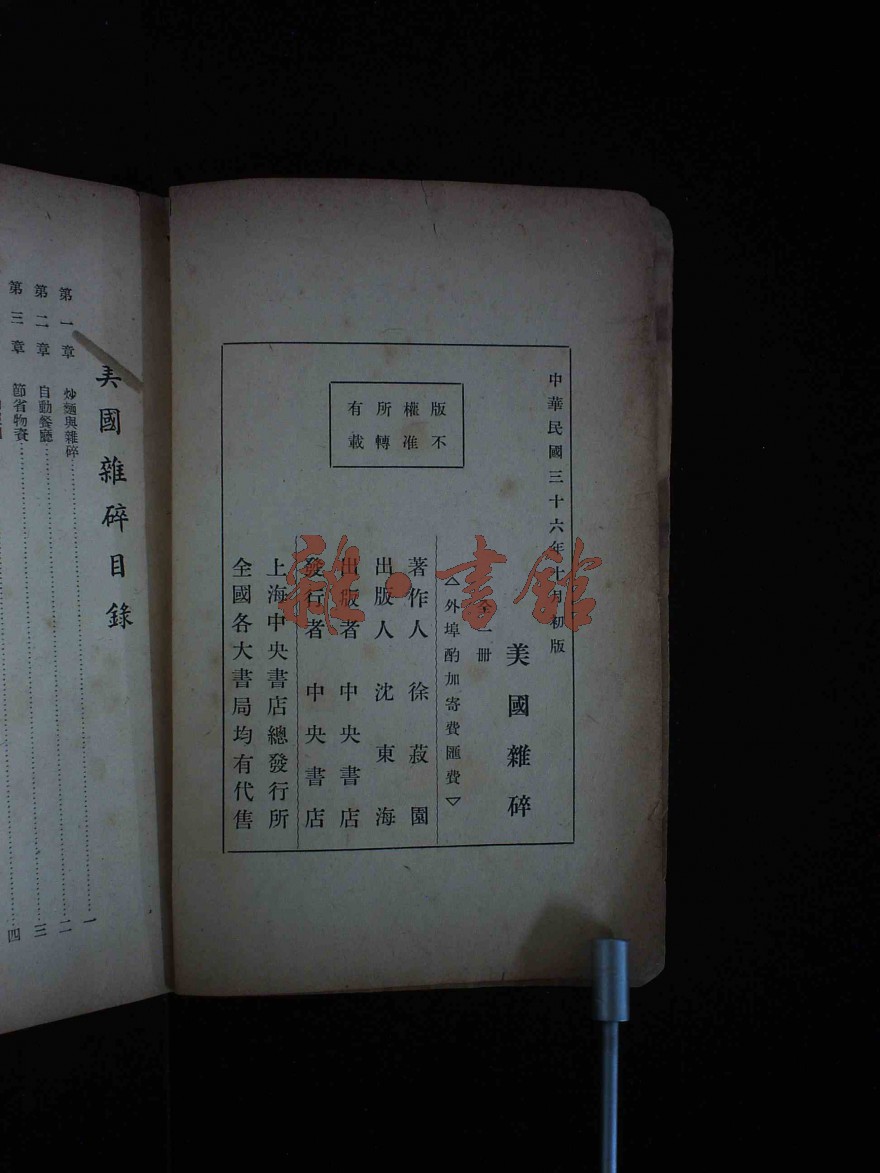 中華民國三十六年十月初版
美國雜碎
全一冊
◁外埠酌加寄費匯費▷
著作人 徐蔌園
出版人 沈東海
出版者 中央書店
發行者 中央書店
上海中央書店總發行所
全國各大書局均有代售
版權所有
不准轉載
美國雜碎目錄
第一章 炒麵與雜碎……一
第二章 自動餐廳……二
第三章 節省物資……三
四
雜·書館